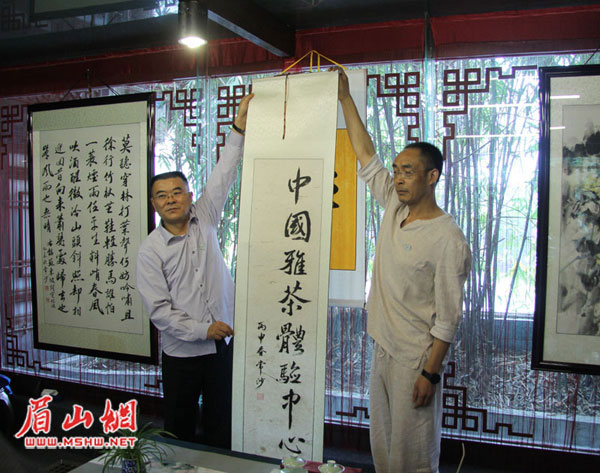 中國雅茶體驗中心
丙申春
莫聽穿林打葉聲何妨吟嘯且
徐行竹杖芒鞋輕勝馬誰怕
一蓑煙雨任平生料峭春風
吹酒醒微冷山頭斜照却相
迎回首向來蕭瑟處歸去也
無風雨也無晴
眉山網
WWW.MSHW.NET